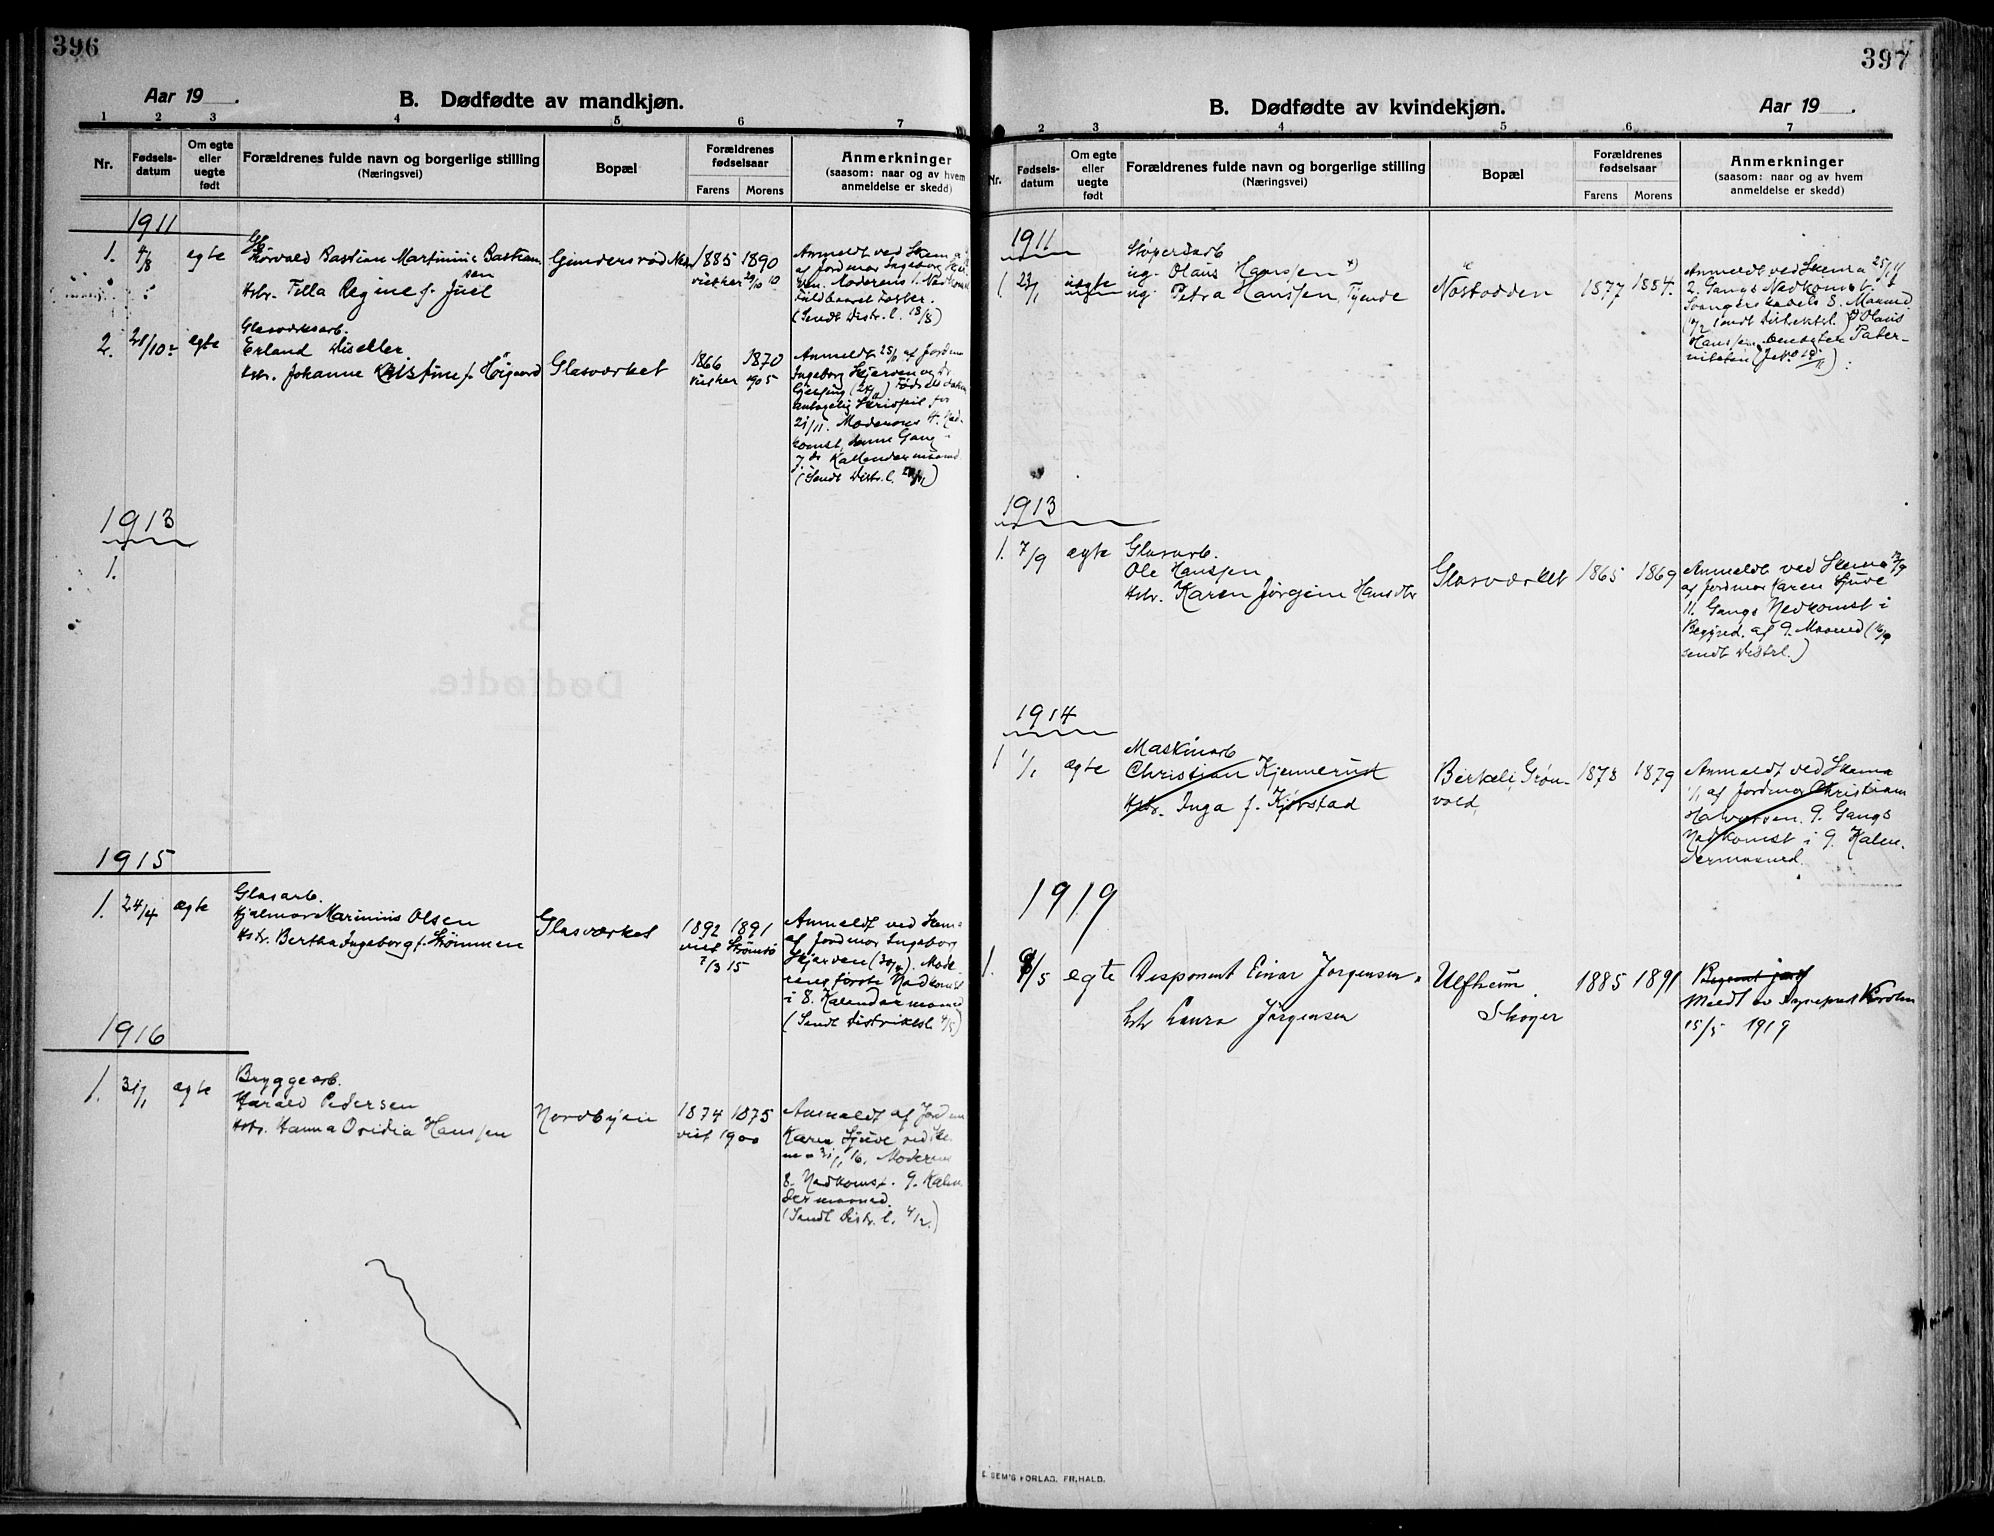 396
Aar 19
B. Dødfødte av mandkjøn.
1 2 3 4 5 6 7
Nr.
Fødsels-
datum
Om egte
eller
uegte
født
Forældrenes fulde navn og borgerlige stilling
(Næringsvei)
Bopæl
Forældrenes
fødselsaar
Farens Morens
Anmerkninger
(saasom: naar og av hvem
anmeldelse er skedd)
1911
1. 4/8 egte
Thorvald Bastian Martinius Bastian
sen
Hstr. Tilla Regine f. Juel
1885 1890
viet her 29/10 10
Anmeldt ved Skema
af Jordmor Ingeborg
Moderens 1. Nedkomst
Fuldbaaret Foster.
(Sendt Distr. l. 18/8)
2. egte
Glasværksarb.
Erland
Hstr. Johanne Kristine f. Höigaard
Glasværket
1866 1870
viet her 1905
Anmeldt 25/11 af Jordm
Ingeborg Skjerven og Dr.
Fødselsdatum
antagelig Skrivfeil for
21/11. Moderens 4. Ned-
komst, denne Gang i
7de Kallendermaaned.
(Sendt Distr. l.
1913
1.
1915
1. 24/4 ægte
Glasarb.
Hjalmar Marinius Olsen
Hstr. Bertha Ingeborg f. Strømmen
Glasværket
1892 1891
viet Strømsö
7/3 15
Anmeldt ved Skema
af Jordmor Ingeborg
Skjerven (30/4). Mode-
rens første Nedkomst
i 8. Kalendermaaned
(Sendt Distriktsl. 4/5)
1916
1. 31/1 ægte
Bryggearb.
Harald Pedersen
Hstr. Hanna Ovidia Hanssen
Nordbyen
1874 1875
viet 1900
Anmeldt af Jordm
Karen Sjuve ved Ske-
ma 31/1 16. Moderens
8. Nedkomst. 9. Kalen
dermaaned.
(Sendt Distr. l. 4/2.)
397
B. Dødfødte av kvindekjøn.
Aar 19
2 3 4 5 6 7
Nr.
Fødsels-
datum
Om egte
eller
uegte
født
Forældrenes fulde navn og borgerlige stilling
(Næringsvei)
Bopæl
Forældrenes
fødselsaar
Farens Morens
Anmerkninger
(saasom: naar og av hvem
anmeldelse er skedd)
1911
1. 23/1 uegte
ug. Olaus Hanssen x)
ug. Petra Hanssen, Tjende
Nøstodden
1877 1884.
Anmeldt ved Skema
2. Gangs Nedkomst i
Svangerskabets 8. Maaned
sendt Distriktsl.) x) Olaus
Hanssen benegter Pater-
niteten
1913
1. 7/9 ægte
Glasarb.
Ole Hanssen
Hstr. Karen Jørgine Hansdtr
Glasværket
1865 1869
Anmeldt ved Skema
af Jordmor Karen Sjuve
11. Gangs Nedkomst i
Begynd. af 9. Maaned (16/9
sendt Distrl.)
1914
1 1/1 ægte
Maskinarb
Christian Kjennerud
Hstr. Inga f. Kjørstad
Birkeli, Grøn-
vold,
1873 1879
Anmeldt ved Skema
1/1 af Jordmor Christiane
Halvorsen. 9. Gangs
Nedkomst i 9. Kalen-
dermaaned.
1919
1. 8/5 egte
Disponent Einar Jørgensen
hstr Laura Jørgensen
Ulfheim
Skoger
1885 1891
Meldt av
15/5 1919
E. SEM'S FORLAG. FR.HALD.